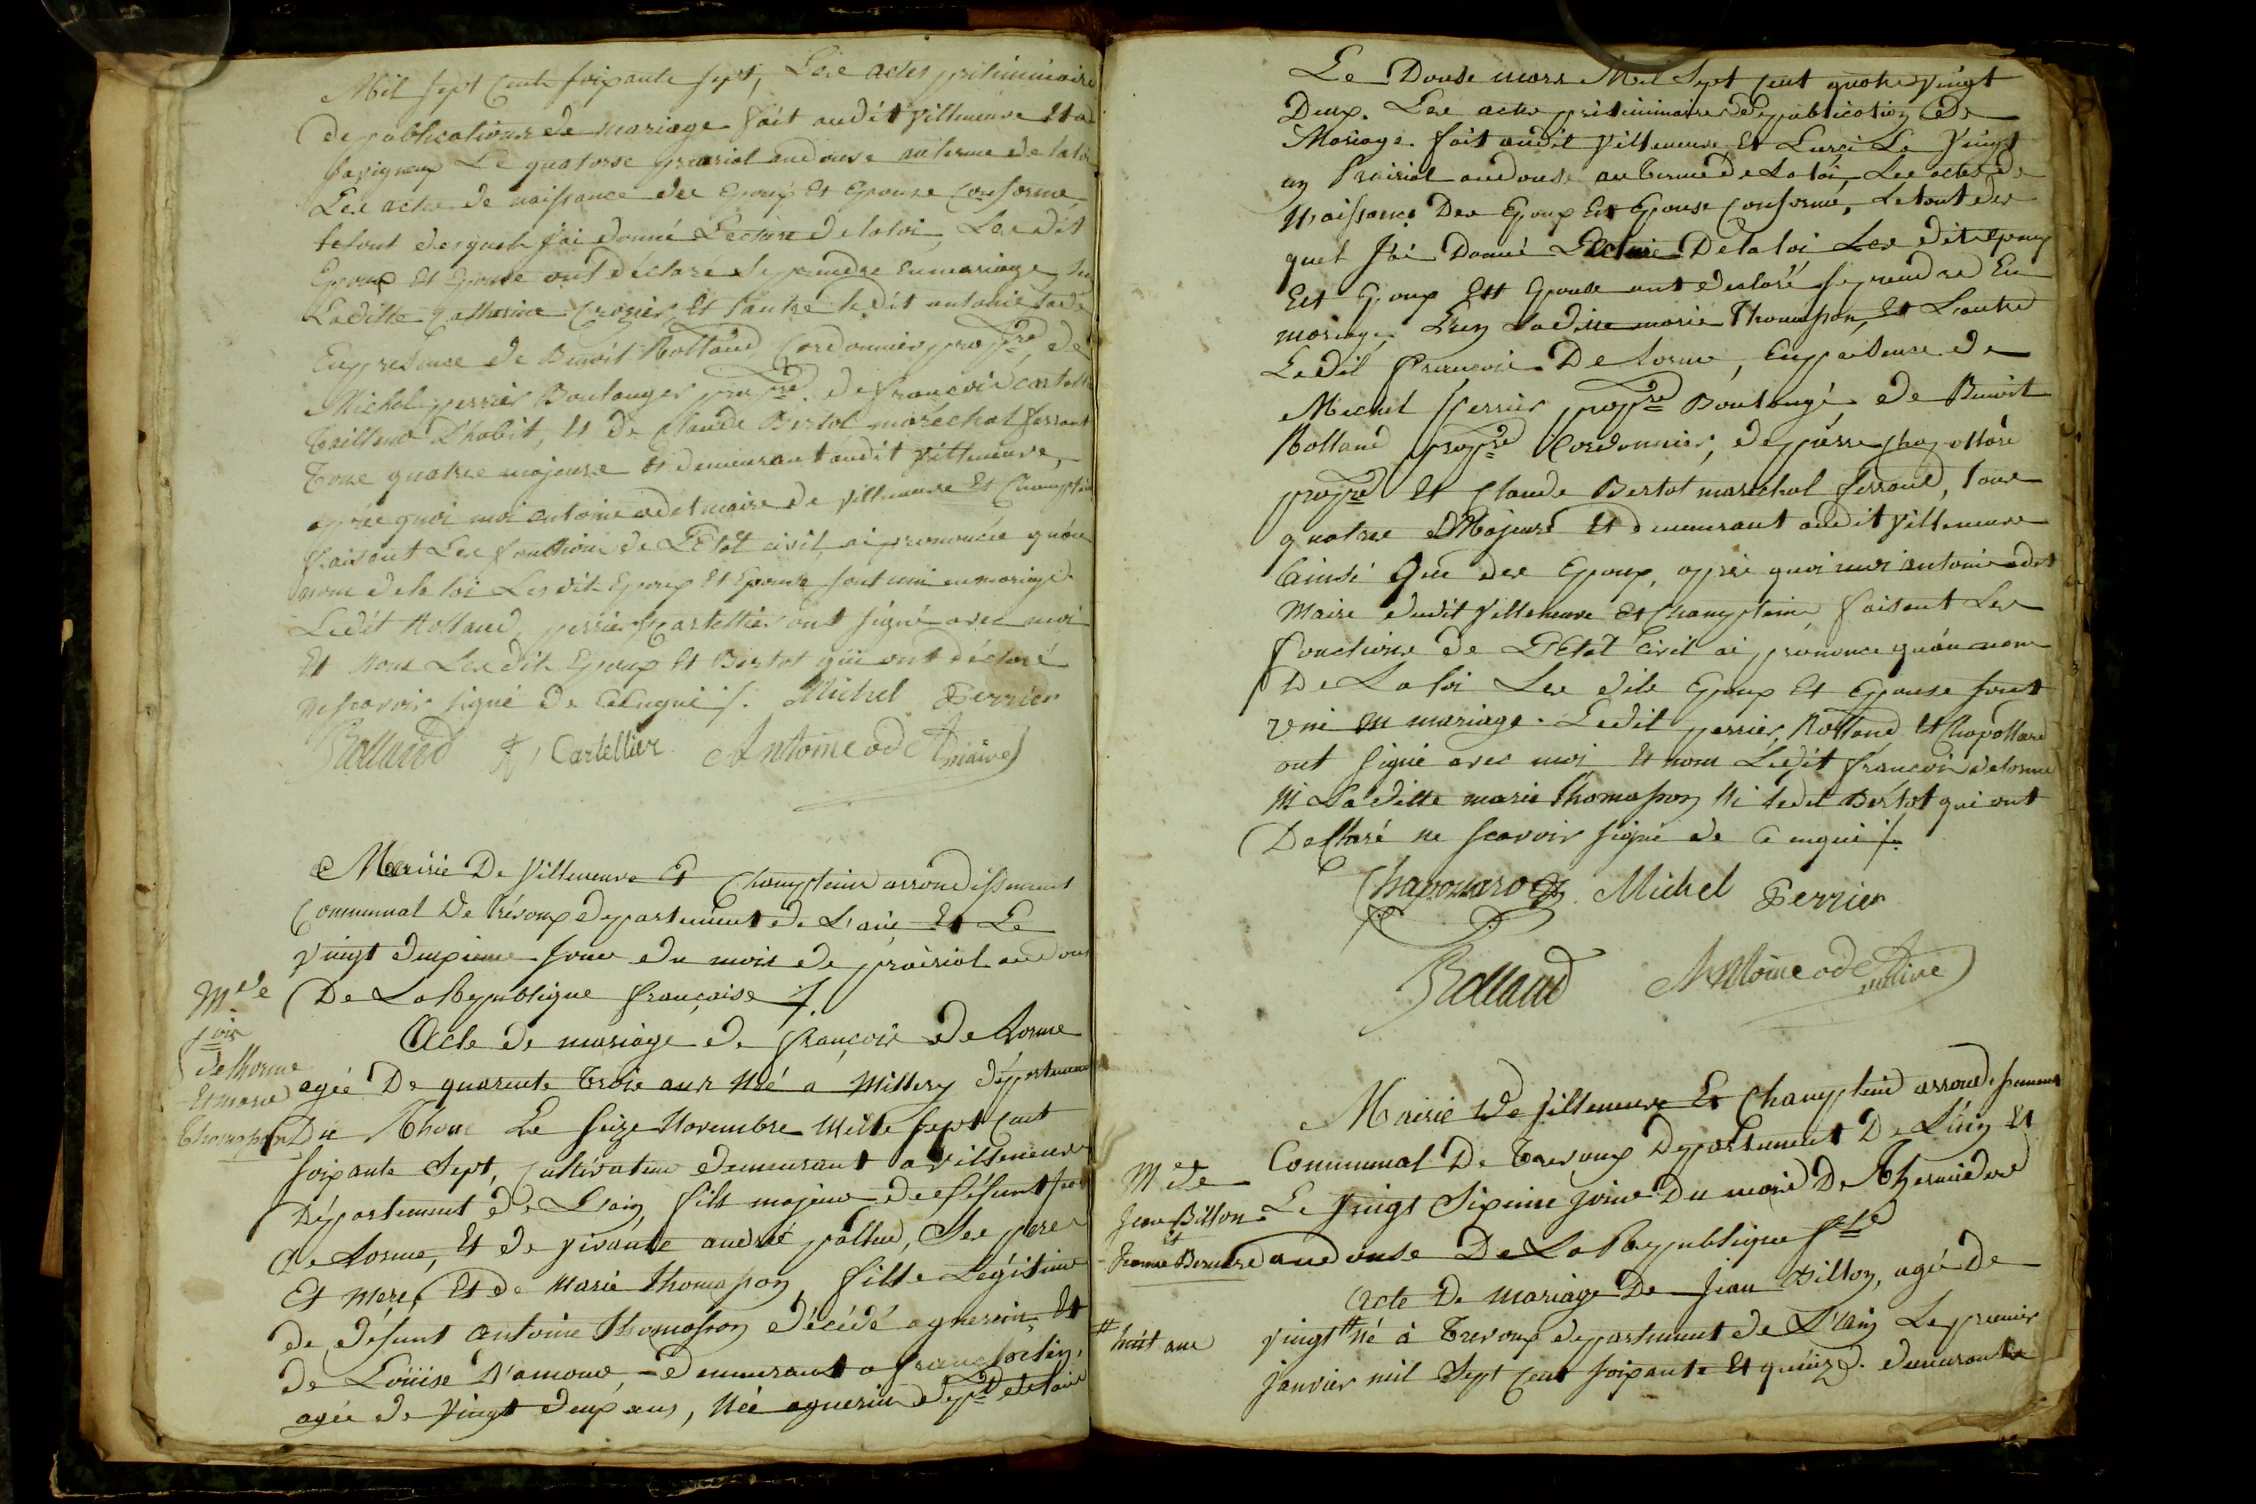 Mil sept Cent soixante sept, Les actes préliminaire
de publications de mariage fait audit villeneuve Et a
Savigneux Le quatorse prairial an douse au terme de la loi
Les acte de naissance des Epoux Et Epouse Conforme,
le tout desquels j'ai donné Lecture de la loi, Les dit
Epoux Et Epouse ont déclaré se prendre en mariage
Laditte Catherine Crozier, Et l'autre ledit antoine
En presence de Benoit Rolland Cordonnier propre, de
Michel perrier Boulanger propre. de françois Cartellier
tailleur D'habit, Et de Claude Bertot maréchal ferrant
tous quatres majeurs Et demeurant audit villeneuve,
après quoi moi antoine odet maire de villeneuve Et Champtein
faisant Les fonctions de L'Etat civil, ai prononcé qu'au
nom de la loi Les dits Epoux Et Epouse sont uni en mariage
Ledit Rolland, perrier Cartellier ont signé avec moi
Et non Les dits Epoux Et Bertot qui ont déclaré
ne scavoir signé de ce enquis /. Michel Perrier
Rolland f. Cartellier Antoine odet maire
Mairie De Villeneuve Et Champtein arrondissement
Communal De Trévoux département de L'ain Et Le
vingt deuxieme Jour du mois de prairial an douse
De La République françaíse /.
M.de
fois
delhorme
Et marie
thomasson
Acte de mariage de françois de Lorme
agée De quarente trois ans Né a Millery département
Du Rhone Le seize Novembre Mille sept cent
soixante Sept, cultivateur demeurant a villeneuve
Département de L'ain fils majeur de défunt
de Lorme, Et de vivante andrée pallud, Ses pere
Et mere, Et de Marie thomasson fille Légitime
de défunt antoine thomasson décédé a guereins Et
de Loüise D'amour, demeurant a francheleins,
agée de vingt deux ans, Née a guereins dept de l'ain
Le Douse mars Mil Sept Cent quatre vingt
Deux. Les actes préliminaires de publication De
Mariage fait audit villeneuve Et Lurci Le vingt
un Prairial an douse au terme de La loi, Les actes de
Naissance Des Epoux Et Epouse Conforme, Le tout des
quel J'ai Donné Lecture De la loi Les dit epoux
Est Epoux Ett Epouse ont declaré se prendre En
mariage, L'un Laditte marie Thomasson, Et L'autre
Ledit françois De Lorme, En présence de
Michel perrier propre Boulangé, de Benoit
Rolland propre Cordonnier, de pierre Chapollard
propre Et Claude Bertot maréchal ferrand, tous
quatres Majeurs Et demeurant audit villeneuve
Ainsi Que des Epoux, après quoi moi antoine odet
Maire dudit villeneuve Et Champtein, faisant Les
fonctions de L'Etat Civil ai prononce qu'au nom
De La loi Les dits Epoux Et Epouse sont
uni en mariage. Ledit perrier, Rolland Et Chapollard
ont signé avec moi Et non Ledit françois delorme
Ni Laditte marie thomasson Ni ledit Bertot qui ont
Déclaré ne scavoir signé de ce enquis /.
Chapollard Michel Perrier
Rolland Antoine odet maire
Mairie de Villeneuve Et Champtein arrondissement
Communal De Trevoux Département De L'ain Et
Le vingt Sixieme jour Du mois De Thermidor
an douse De La République fse
M de
Jean Billon
et
Jeanne
Acte De mariage De Jean Billon, agé de
vingt # né à Trevoux département de L'ain Le premier
# huit ans
Janvier mil Sept Cent soixante Et quinze. demeurant